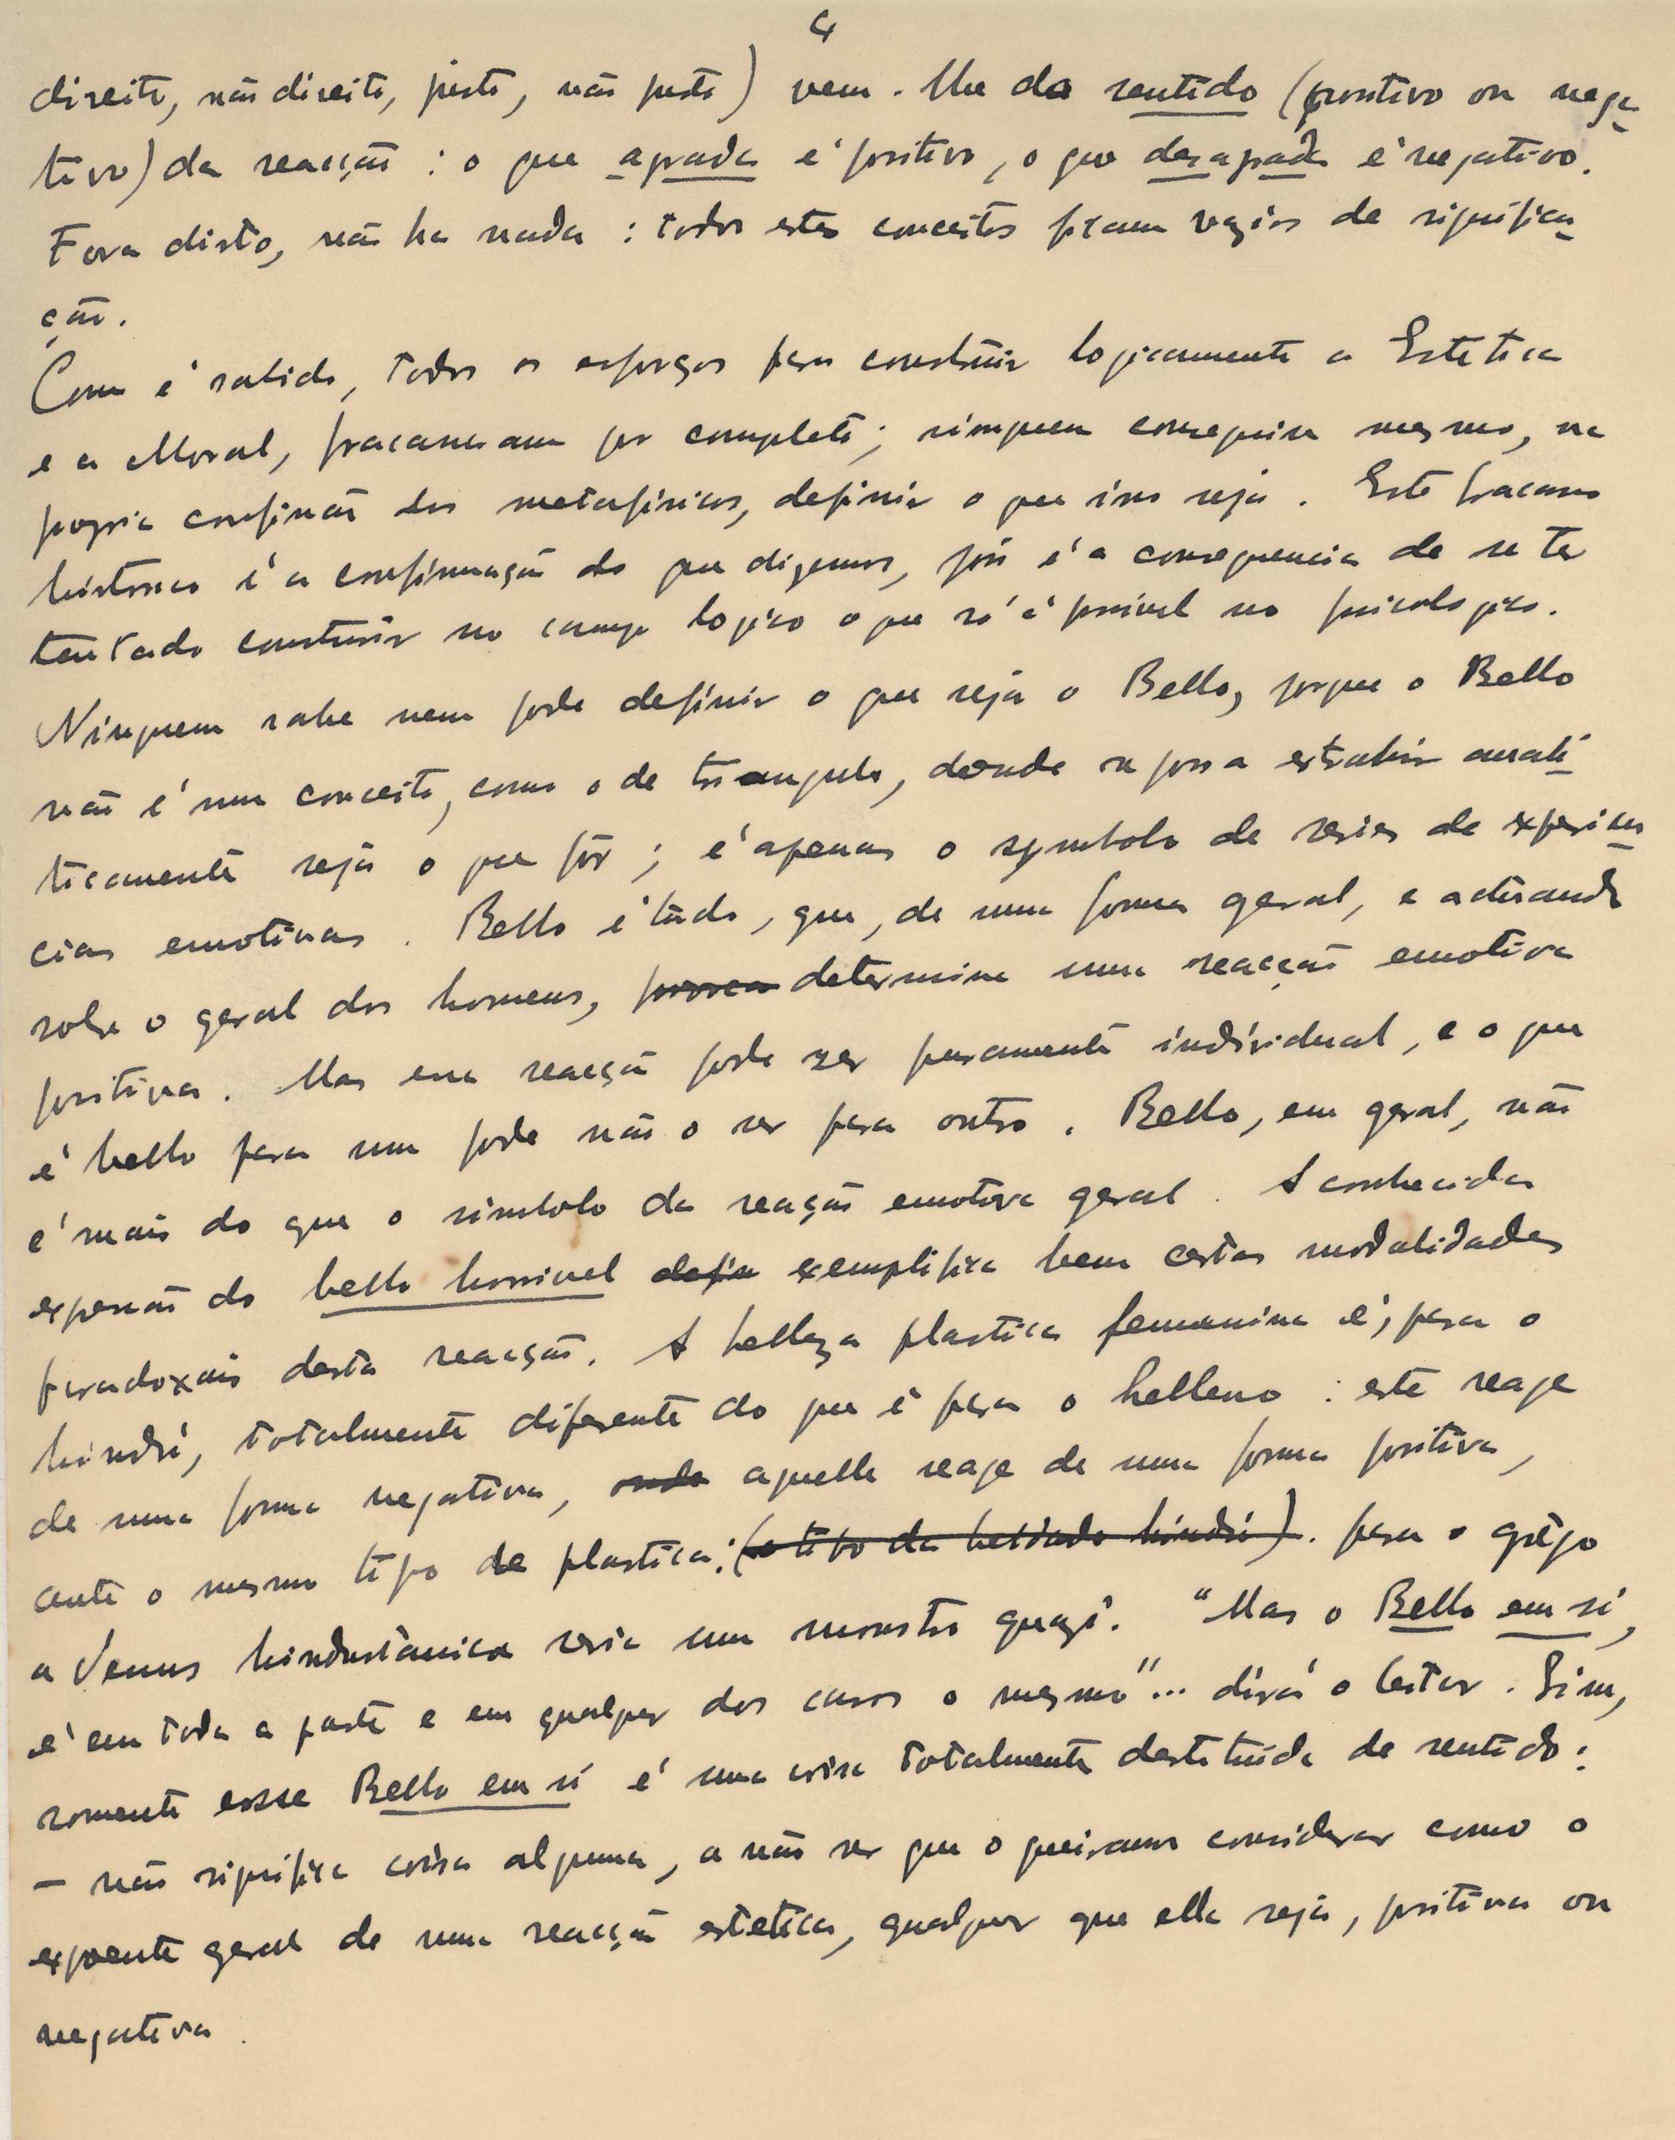 4
direito, não direito, justo, não justo) vem-lhe do sentido (positivo ou nega-
tivo) da reacção: o que agrada é positivo, o que desagrada é negativo.
Fora disto, não ha nada: todos estes conceitos ficam vazios de significa-
ção.
Como é sabido, todos os esforços para construir logicamente a Estetica
e a Moral, fracassaram por completo; ninguem conseguiu mesmo, na
propria confissão dos metafisicos, definir o que isso seja. Este fracasso
historico é a confirmação do que dizemos, pois é a consequencia de se ter
tentado construir no campo logico o que só é possivel no psicologico.
Ninguem sabe nem pode definir o que seja o Bello, porque o Bello
não é um conceito, como o de triangulo, donde se possa extrahir anali-
ticamente seja o que fôr; é apenas o symbolo de series de experien-
cias emotivas. Bello é tudo, que, de uma forma geral, e actuando
sobre o geral dos homens, provoca determina uma reacção emotiva
positiva. Mas essa reacção pode ser puramente individual, e o que
é bello para um pode não o ser para outro. Bello, em geral, não
é mais do que o simbolo da reacção emotiva geral. A conhecida
expressão do bello horrivel defin exemplifica bem certas modalidades
paradoxais desta reacção. A belleza plastica femenina é, para o
hindú, totalmente diferente do que é para o helleno: este reage
de uma forma negativa, onde aquelle reage de uma forma positiva,
ante o mesmo tipo de plastica: (o tipo da beldade hindú). para o grêgo
a Venus hindustânica seria um monstro quazi. "Mas o Bello em si,
é em toda a parte e em qualquer dos casos o mesmo"... dirá o leitor. Sim,
somente esse Bello em si é uma coisa totalmente destituida de sentido:
— não significa coisa alguma, a não ser que o queiramos considerar como o
expoente geral de uma reacção estetica, qualquer que ella seja, positiva ou
negativa.